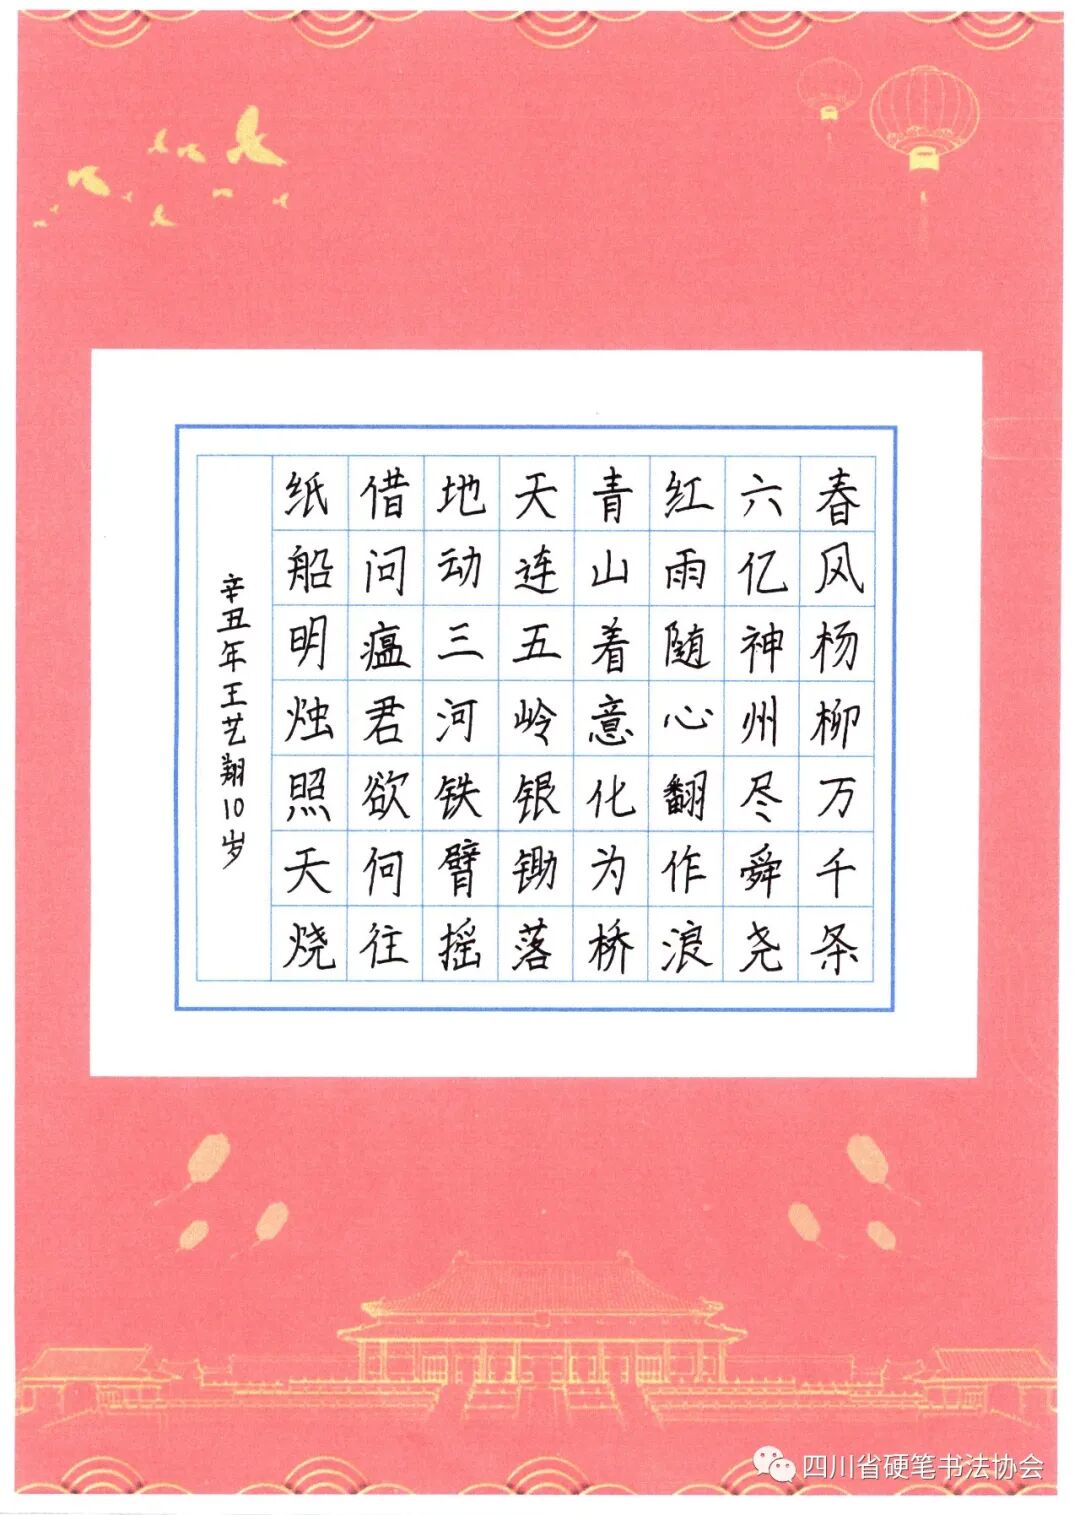 春风杨柳万千条
六亿神州尽舜尧
红雨随心翻作浪
青山着意化为桥
天连五岭银锄落
地动三河铁臂摇
借问瘟君欲何往
纸船明烛照天烧
辛丑年王艺翔10岁
四川省硬笔书法协会